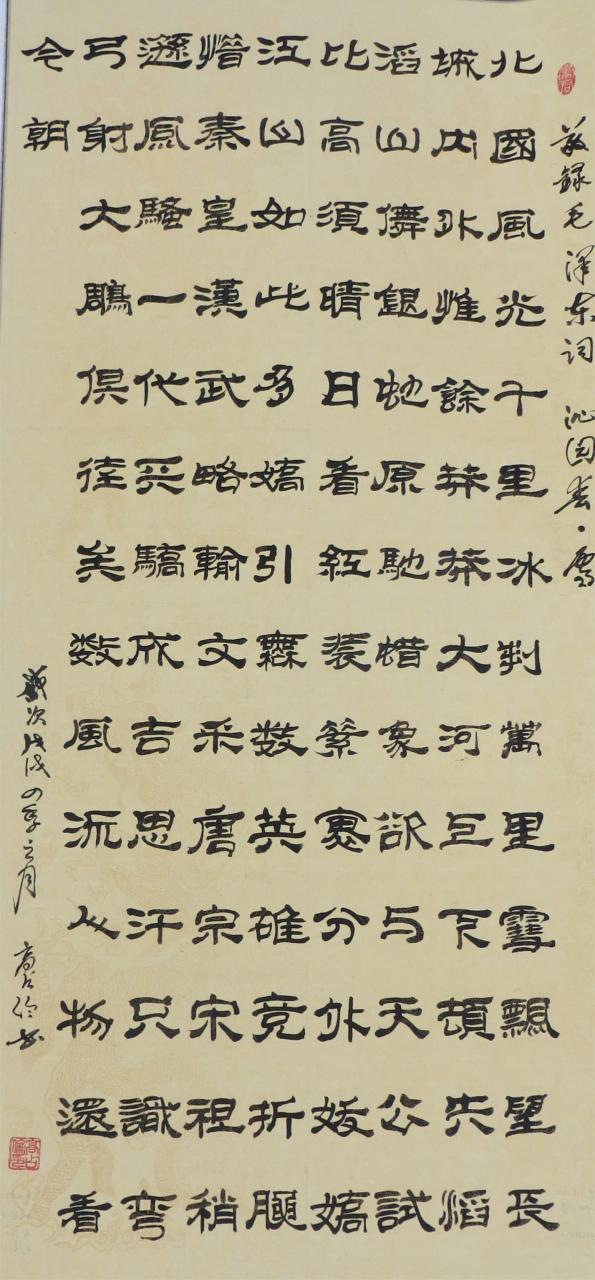 敬錄毛澤东词 沁园春·雪
北國風光千里冰封萬里雪飄望長
城内外惟餘莽莽大河上下頓失滔
滔山儛銀蛇原馳蜡象欲与天公試
比高須晴日看紅装素裹分外妖嬈
江山如此多嬌引無数英雄竞折腰
惜秦皇漢武略輸文采唐宗宋祖稍
遜風騷一代天驕成吉思汗只識彎
弓射大鵰俱往矣数風流人物還看
今朝
歲次戊戌四季之月 高占伦书